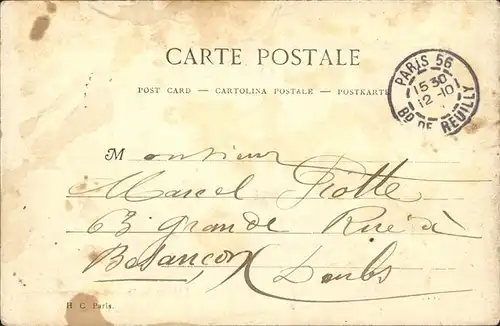 CARTE POSTALE
POST CARD — CARTOLINA POSTALE — POSTKARTE
PARIS 56
15 30
12 - 10
BD DE REUILLY
Monsieur
Marcel Piotte
63 grande Rue à
Besançon Doubs
H C Paris.